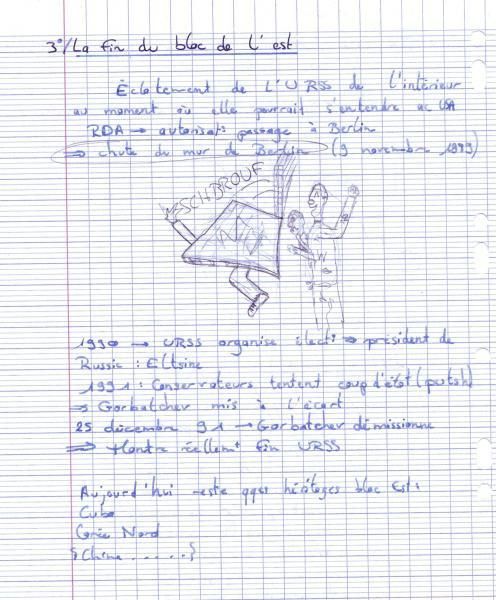 3°/ La fin du bloc de l'est
Éclatement de l'URSS de l'intérieur
au moment où elle pourrait s'entendre ac USA
RDA → autorisat° passage à Berlin
⇒ chute du mur de Berlin (9 novembre 1999)
SCHBROUF
1990 → URSS organise élect° ⇒ président de
Russie : Eltsine
1991 : Conservateurs tentent coup d'état (putsh)
⇒ Gorbatchev mis à l'écart
25 décembre 91 → Gorbatchev démissionne
⇒ Montre réellemt fin URSS
Aujourd'hui reste qqes héritages bloc Est :
Cuba
Corée Nord
{Chine .....}